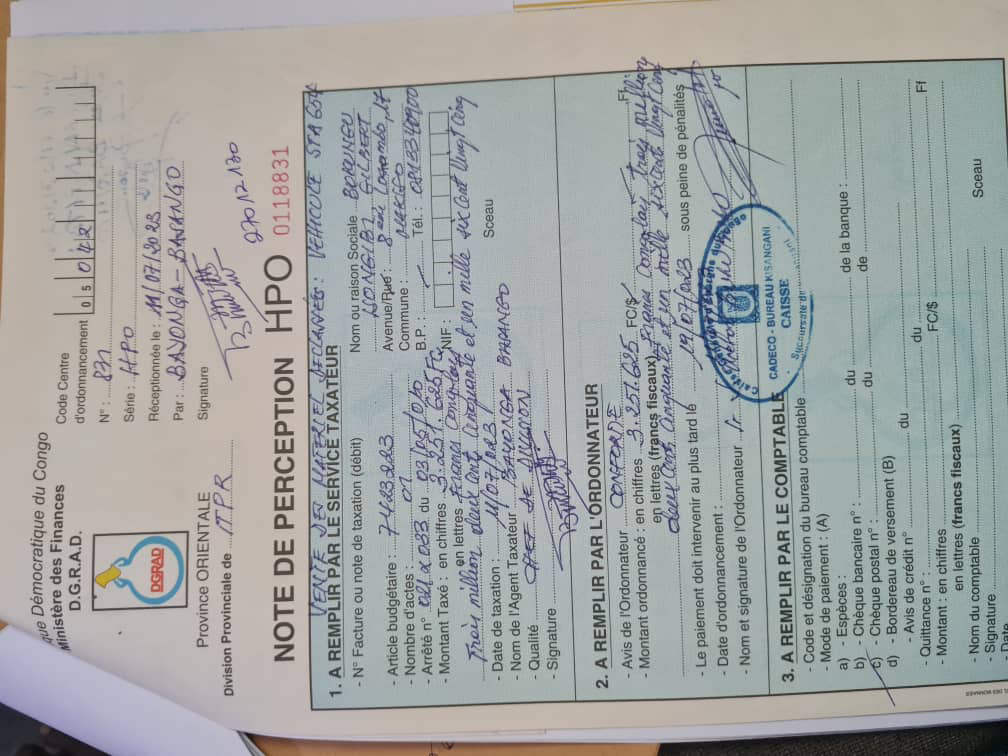 que Démocratique du Congo
Ministère des Finances
D.G.R.A.D.
DGRAD
PROVINCE ORIENTALE
Division Provinciale de ITPR
Code Centre
d'ordonnancement 0 5 0 4 2
N° : 831
Série : HPO
Réceptionnée le : 11/07/2023
Par : BAYONGA-BASANGO
Signature
27012.170
NOTE DE PERCEPTION HPO 0118831
1. A REMPLIR PAR LE SERVICE TAXATEUR
VENTE DES MATERIEL DECLASSES : VEHICULE
- N° Facture ou note de taxation (débit)
Nom ou raison Sociale
GILBERT
- Article budgétaire : 7423223
Avenue/Rue : 8ème
- Nombre d'actes : 01
Commune :
- Arrêté n° du
B.P. : Tél. :
- Montant Taxé : en chiffres 3.251.625 Fc
NIF :
en lettres Francs Congolais
Trois million deux cent cinquante et un mille six cent vingt cinq
- Date de taxation : 11/07/2023
Sceau
- Nom de l'Agent Taxateur BAYONGA BASANGO
- Qualité CHEF DE DIVISION
- Signature
2. A REMPLIR PAR L'ORDONNATEUR
- Avis de l'Ordonnateur CONFORME
- Montant ordonnancé : en chiffres 3.251.625 FC/$ Ff
en lettres (francs fiscaux) Francs Congolais trois million
deux cent cinquante et un mille six cent vingt cinq
- Le paiement doit intervenir au plus tard le 19/07/023 sous peine de pénalités
- Date d'ordonnancement :
- Nom et signature de l'Ordonnateur
CADECO - BUREAU KISANGANI
CAISSE
3. A REMPLIR PAR LE COMPTABLE
- Code et désignation du bureau comptable
- Mode de paiement : (A)
a) - Espèces :
b) - Chèque bancaire n° : du de la banque :
c) - Chèque postal n° : du de
d) - Bordereau de versement (B)
- Avis de crédit n° du
- Quittance n° : du
- Montant : en chiffres FC/$ Ff
en lettres (francs fiscaux)
- Nom du comptable
- Signature Sceau
- Date